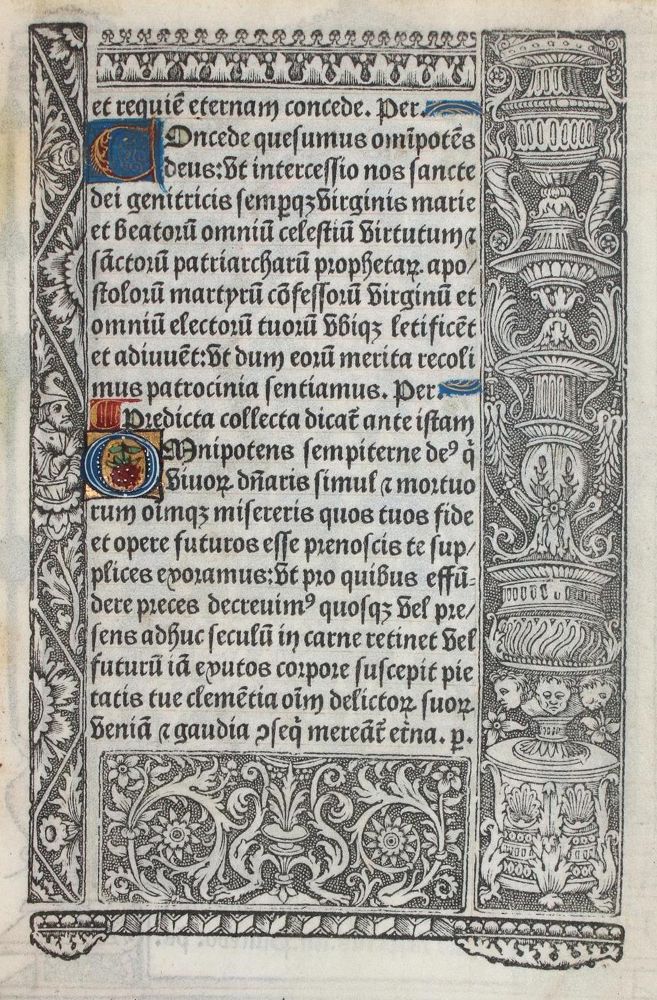 et requiē eternam concede. Per.
Concede quesumus om̄ipotēs
deus: vt intercessio nos sancte
dei genitricis semꝑqꝫ virginis marie
et beatorū omniū celestiū virtutum ⁊
sāctorū patriarcharū prophetaꝝ. apo/
stolorū martyrū cōfessorū virginū et
omniū electorū tuorū vbiqꝫ letificēt
et adiuuēt: vt dum eorū merita recoli
mus patrocinia sentiamus. Per
¶ Predicta collecta dicat̄ ante istam
OMnipotens sempiterne deꝰ q̄
viuoꝝ dn̄aris simul ⁊ mortuo
rum oīmqꝫ misereris quos tuos fide
et opere futuros esse prenoscis te sup/
plices exoramus: vt pro quibus effū-
dere preces decreuimꝰ quosqꝫ vel pre/
sens adhuc seculū in carne retinet vel
futurū iā exutos corpore suscepit pie
tatis tue clemētia oīm delictoꝝ suoꝝ
veniā ⁊ gaudia ↄseq̄ mereāt̄ et̄na. p.